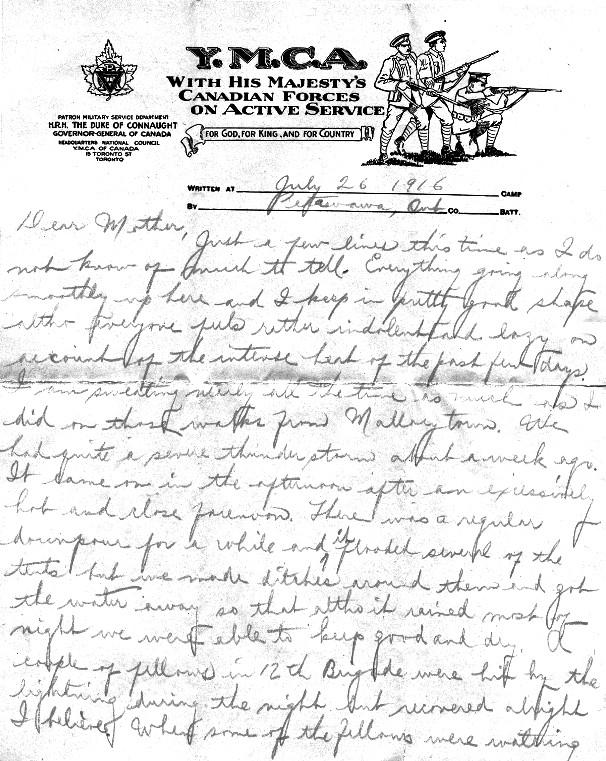 Y.M.C.A.
WITH HIS MAJESTY'S
CANADIAN FORCES
ON ACTIVE SERVICE
FOR GOD, FOR KING, AND FOR COUNTRY
PATRON MILITARY SERVICE DEPARTMENT
H.R.H. THE DUKE OF CONNAUGHT
GOVERNOR-GENERAL OF CANADA
HEADQUARTERS NATIONAL COUNCIL
Y.M.C.A. OF CANADA
15 TORONTO ST
TORONTO
WRITTEN AT July 26 1916 CAMP
BY Petawawa, Ont CO. BATT.
Dear Mother,
Just a few lines this time as I do
not know of much to tell. Everything going along
smoothly up here and I keep in pretty good shape
altho everyone feels rather indolent and lazy on
account of the intense heat of the past few days.
I am sweating nearly all the time as much as I
did on those walks from Mallorytown. We
had quite a severe thunder storm about a week ago.
It came on in the afternoon after an excessively
hot and close forenoon. There was a regular
downpour for a while and it flooded several of the
tents but we made ditches around them and got
the water away so that altho it rained most of
night we were able to keep good and dry. A
couple of fellows in 12th Brigade were hit by the
lightning during the night but recovered alright
I believe. When some of the fellows were watching